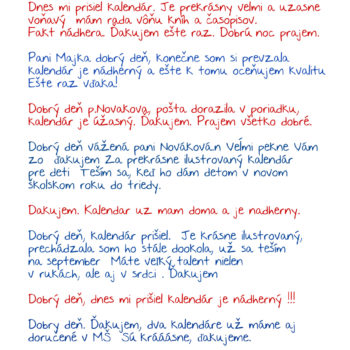 Dnes mi prisiel kalendár. Je prekrásny velmi a uzasne
voňavý mám rada vôňu kníh a časopisov.
Fakt nádhera. Ďakujem ešte raz. Dobrú noc prajem.
Pani Majka dobrý deň, konečne som si prevzala
kalendár je nádherný a ešte k tomu oceňujem kvalitu
Ešte raz vďaka!
Dobrý deň p.Novakova, pošta dorazila v poriadku,
kalendár je úžasný. Ďakujem. Prajem všetko dobré.
Dobrý deň vážená pani Nováková.n Veľmi pekne Vám
zo ďakujem Za prekrásne ilustrovaný kalendár
pre deti Teším sa, keď ho dám deťom v novom
školskom roku do triedy.
Dakujem. Kalendar uz mam doma a je nadherny.
Dobrý deň, kalendár prišiel. Je krásne ilustrovaný,
prechádzala som ho stále dookola, už sa teším
na september Máte veľký talent nielen
v rukách, ale aj v srdci . Ďakujem
Dobrý deň, dnes mi prišiel kalendár je nádherný !!!
Dobry den. Ďakujem, dva kalendáre už máme aj
doručené v MŠ Sú krááásne, ďakujeme.